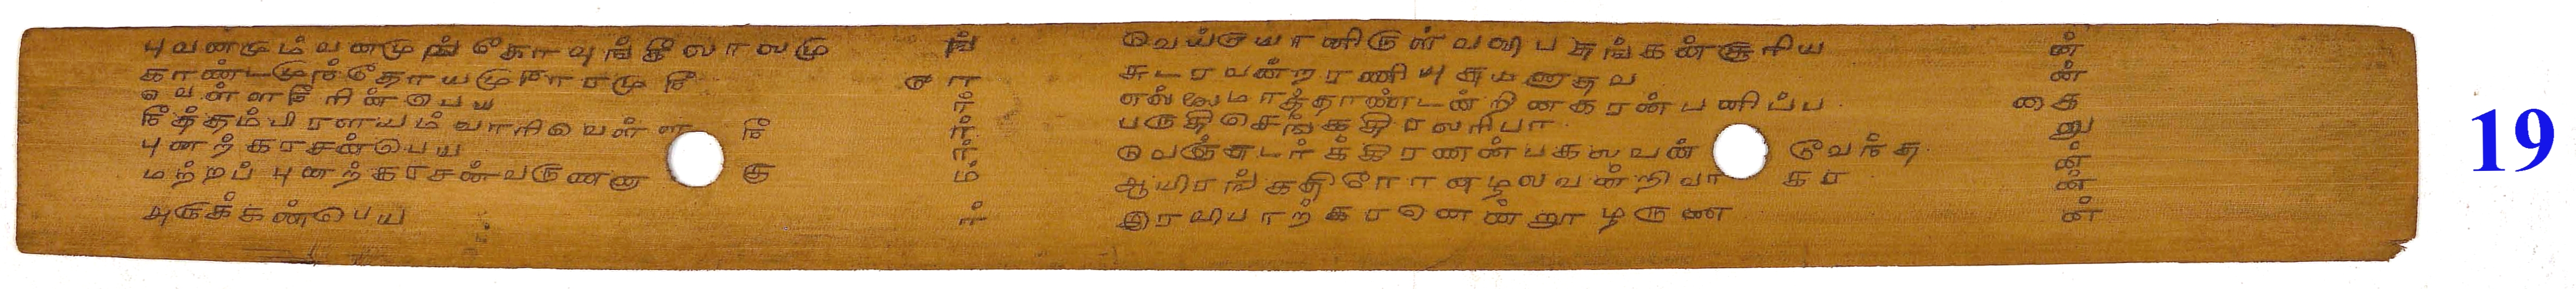 புவனமும் வனமுங் கோவுங்கீலாலமு ங்
காண்டமுந்தோயமுநாரமுநீ ரு ர்
வெள்ளநீரின்பெய ர்
நீத்தம்பிரளயம் வாரிவெள்ள நீ ர்
புனற்கரசன்பெய ர்
மற்றப் புனற்கரசன்வருணனா கு ம்
அருக்கன்பெய ர்
வெய்யோனிருள்வலிபதங்கன்சூரிய ன்
சுடரவன்றரணி உதய னாதவ ன்
எல்லேமாத்தாண்டன்றினகரன்பனிப்ப கை
பருதிசெங்கதிரலரிபா னு
வெஞ்சுடர்க்கிரணன்பகலவன் வேந்த ன்
ஆயிரங்கதிரோனழலவன்றிவா கர ன்
இரவிபாற்கரனென்றூழருண ன்
19